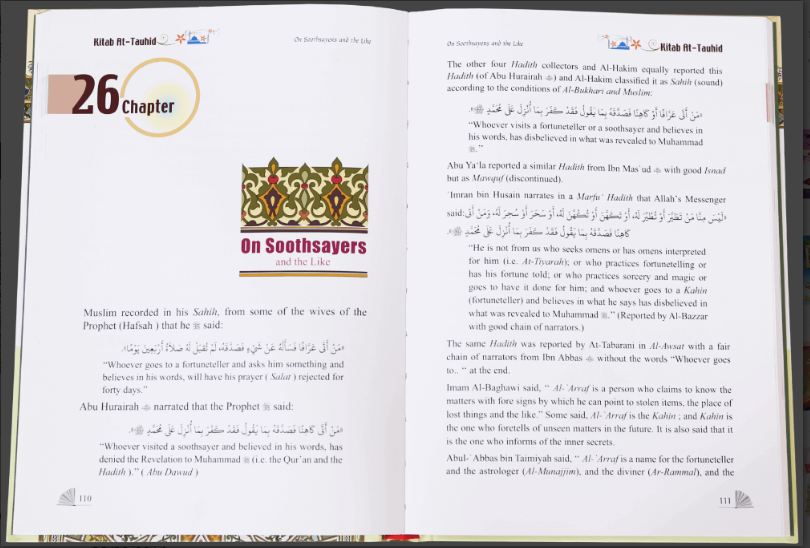 Kitab At-Tauhid
On Soothsayers and the Like
26 Chapter
On Soothsayers
and the Like
Muslim recorded in his Sahih, from some of the wives of the
Prophet (Hafsah ) that he ﷺ said:
«مَنْ أَتَى عَرَّافًا فَسَأَلَهُ عَنْ شَيْءٍ فَصَدَّقَهُ، لَمْ تُقْبَلْ لَهُ صَلَاةٌ أَرْبَعِينَ يَوْمًا».
"Whoever goes to a fortuneteller and asks him something and
believes in his words, will have his prayer ( Salat ) rejected for
forty days."
Abu Hurairah narrated that the Prophet ﷺ said:
«مَنْ أَتَى كَاهِنًا فَصَدَّقَهُ بِمَا يَقُولُ فَقَدْ كَفَرَ بِمَا أُنْزِلَ عَلَى مُحَمَّدٍ ﷺ».
"Whoever visited a soothsayer and believed in his words, has
denied the Revelation to Muhammad ﷺ (i.e. the Qur'an and the
Hadith )." ( Abu Dawud )
110
On Soothsayers and the Like
Kitab At-Tauhid
The other four Hadith collectors and Al-Hakim equally reported this
Hadith (of Abu Hurairah ) and Al-Hakim classified it as Sahih (sound)
according to the conditions of Al-Bukhari and Muslim:
«مَنْ أَتَى عَرَّافًا أَوْ كَاهِنًا فَصَدَّقَهُ بِمَا يَقُولُ فَقَدْ كَفَرَ بِمَا أُنْزِلَ عَلَى مُحَمَّدٍ ﷺ».
"Whoever visits a fortuneteller or a soothsayer and believes in
his words, has disbelieved in what was revealed to Muhammad
ﷺ."
Abu Ya'la reported a similar Hadith from Ibn Mas'ud with good Isnad
but as Mawquf (discontinued).
'Imran bin Husain narrates in a Marfu' Hadith that Allah's Messenger
said: «لَيْسَ مِنَّا مَنْ تَطَيَّرَ أَوْ تُطُيِّرَ لَهُ، أَوْ تَكَهَّنَ أَوْ تُكُهِّنَ لَهُ، أَوْ سَحَرَ أَوْ سُحِرَ لَهُ، وَمَنْ أَتَى
كَاهِنًا فَصَدَّقَهُ بِمَا يَقُولُ فَقَدْ كَفَرَ بِمَا أُنْزِلَ عَلَى مُحَمَّدٍ ﷺ».
"He is not from us who seeks omens or has omens interpreted
for him (i.e. At-Tiyarah); or who practices fortunetelling or
has his fortune told; or who practices sorcery and magic or
goes to have it done for him; and whoever goes to a Kahin
(fortuneteller) and believes in what he says has disbelieved in
what was revealed to Muhammad ﷺ." (Reported by Al-Bazzar
with good chain of narrators.)
The same Hadith was reported by At-Tabarani in Al-Awsat with a fair
chain of narrators from Ibn Abbas without the words "Whoever goes
to.. " at the end.
Imam Al-Baghawi said, " Al-'Arraf is a person who claims to know the
matters with fore signs by which he can point to stolen items, the place of
lost things and the like." Some said, Al-'Arraf is the Kahin ; and Kahin is
the one who foretells of unseen matters in the future. It is also said that it
is the one who informs of the inner secrets.
Abul-'Abbas bin Taimiyah said, " Al-'Arraf is a name for the fortuneteller
and the astrologer (Al-Munajjim), and the diviner (Ar-Rammal), and the
111